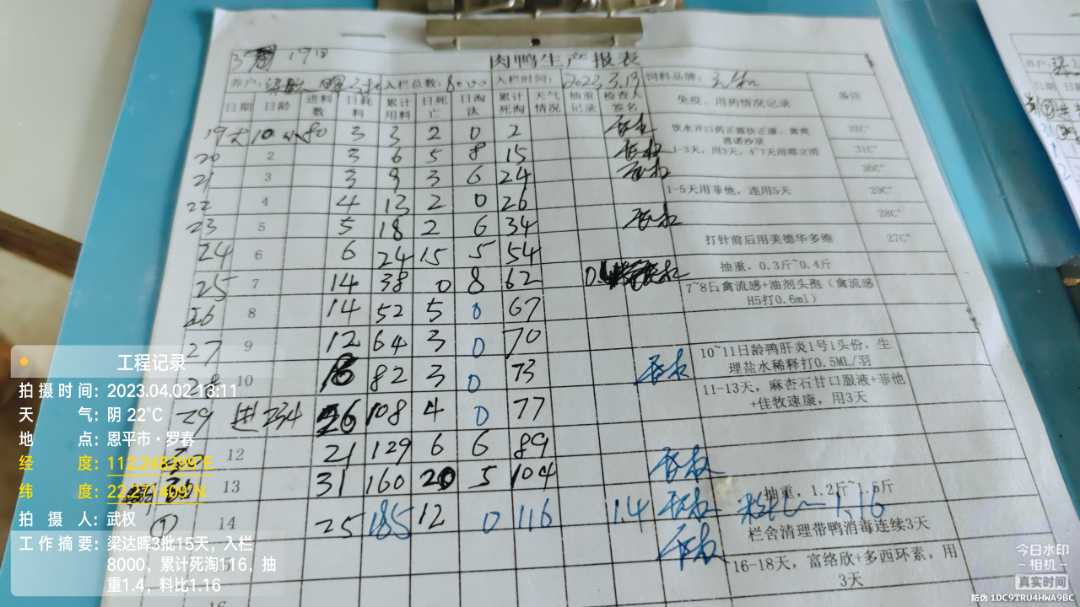 19日
肉鸭生产报表
养户: 入栏总数: 8000 入栏时间: 2023.3.13 饲料品牌:
日期 日龄 进料数 日耗料 累计用料 日死亡 日淘汰 累计死淘 天气情况 抽重记录 检查人签名 免疫、用药情况记录 备注
19 80 3 3 2 0 2 饮水开口药
20 2 3 6 5 8 15 1-3天，用3天，4~7天用 31C°
21 3 3 9 3 6 24 30C°
22 4 4 13 2 0 26 1-5天用菲他，连用5天 29C°
23 5 5 18 2 6 34 28C°
24 6 6 24 15 5 54 打针前后用美德华多维 27C°
抽重，0.3斤~0.4斤
25 7 14 38 0 8 62 7~8日禽流感+油剂头孢（禽流感H5打0.6ml）
26 8 14 52 5 0 67
27 9 12 64 3 0 70 10~11日龄鸭肝炎1号1头份，生理盐水稀释打0.5ML/羽
28 10 18 82 3 0 73
29 进 234 26 108 4 0 77 11-13天，麻杏石甘口服液+菲他+佳牧速康，用3天
12 21 129 6 6 89
31 13 31 160 20 5 104 抽重，1.2斤~1.5斤
14 25 185 12 0 116 1.4 料比 1.16
栏舍清理带鸭消毒连续3天
16-18天，富络欣+多西环素，用3天
工程记录
拍摄时间: 2023.04.02 18:11
天气: 阴 22°C
地点: 恩平市·罗春
经度:
纬度: 22.271409°N
拍摄人: 武权
工作摘要: 梁达晖3批15天，入栏
8000，累计死淘116，抽
重1.4，料比1.16
今日水印
相机
真实时间
防伪 1DC9TRU4HWA9BC